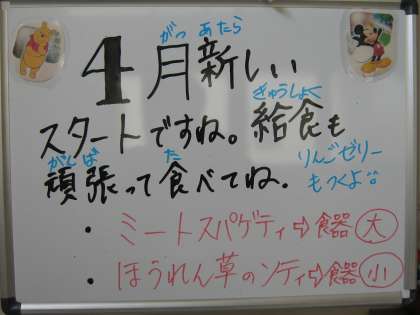 がつ あたら
4月新しい
スタートですね。給食も
きゅうしょく
がんば た
頑張って食べてね。
りんごゼリー
もつくよ
・ミートスパゲティ⇨食器大
・ほうれん草のソティ⇨食器小